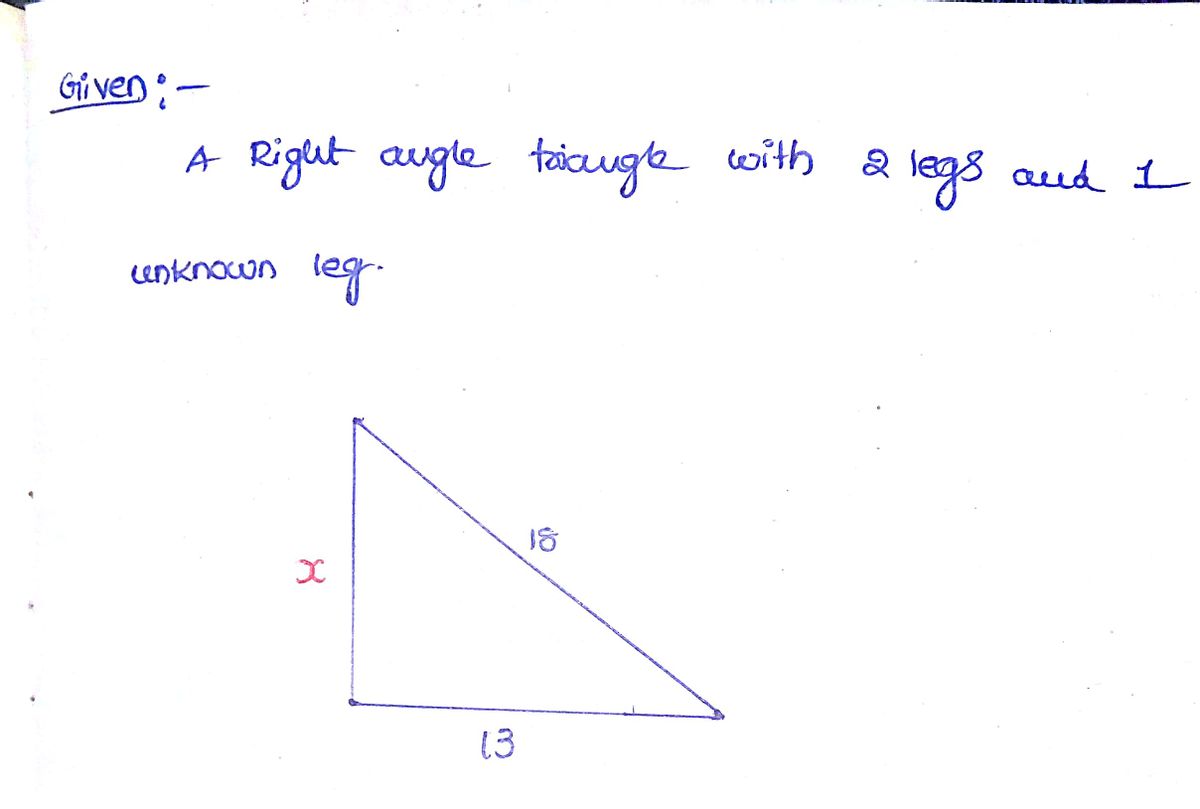 Given:-
A Right angle triangle with 2 legs and 1
unknown leg.
18
x
13